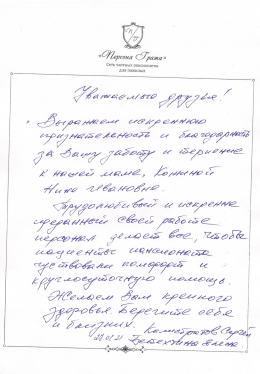 «Персона Грата»
Сеть частных пансионатов
для пожилых
Уважаемые друзья!
Выражаем искреннюю
признательность и благодарность
за Вашу заботу и терпение
к нашей маме,
Нине Ивановне.
Трудолюбивый и искренне
преданный своей работе
персонал делает все, чтобы
пациенты пансионата
чувствовали комфорт и
круглосуточную помощь.
Желаем Вам крепкого
здоровья. Берегите себя
и близких.
Сергей
Елена